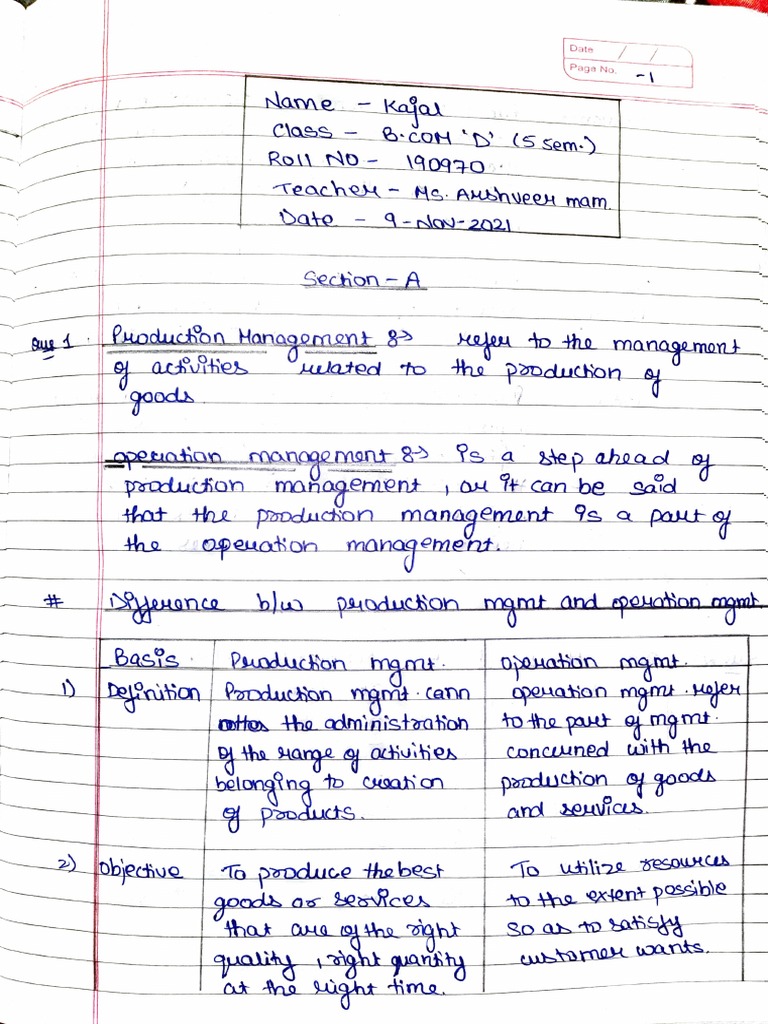 Date / /
Page No. -1
Name - Kajal
Class - B.COM 'D' (5 sem.)
Roll NO - 190970
Teacher - Ms. Arshveer mam.
Date - 9-Nov-2021
Section - A
Que 1. Production Management :-> refer to the management
of activities related to the production of
goods
operation management :-> is a step ahead of
production management, or it can be said
that the production management is a part of
the operation management.
# Difference b/w production mgmt and operation mgmt
Basis Production mgmt. operation mgmt.
1) Definition Production mgmt. cann operation mgmt. refer
the administration to the part of mgmt.
of the range of activities concerned with the
belonging to creation production of goods
of products. and services.
2) Objective To produce the best To utilize resources
goods or services to the extent possible
that are of the right so as to satisfy
quality, right quantity customer wants.
at the right time.